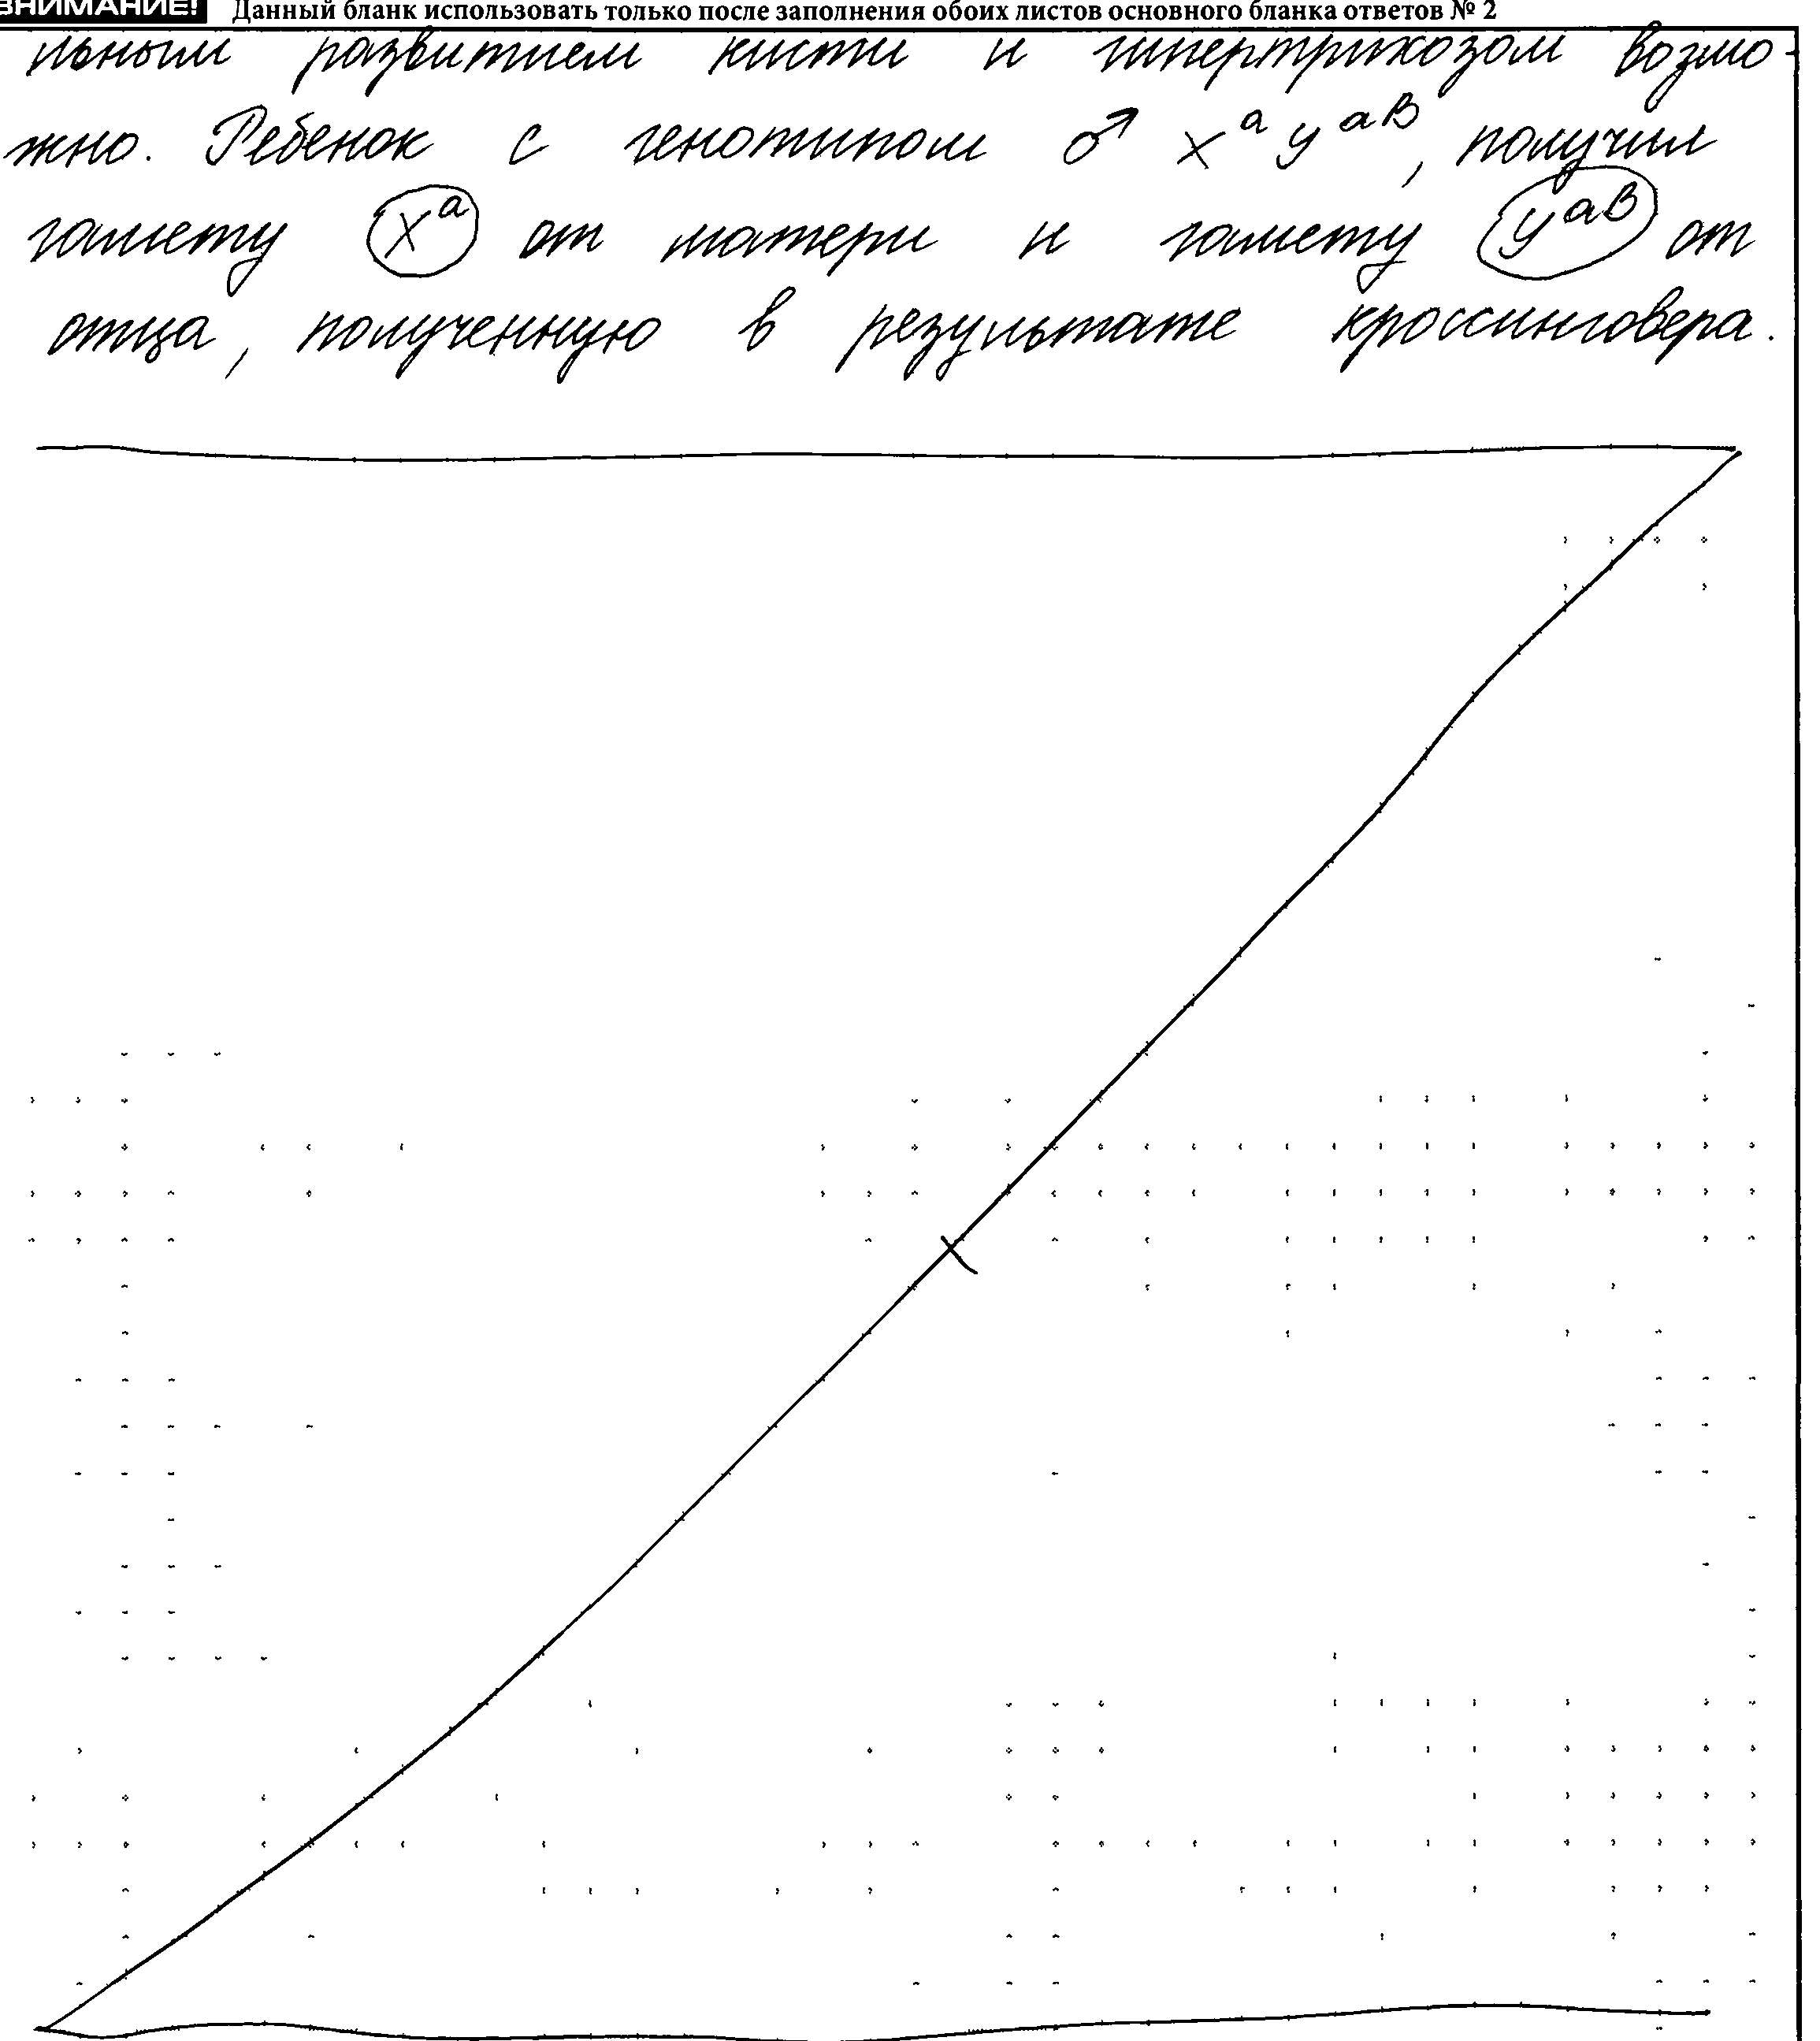 ВНИМАНИЕ! Данный бланк использовать только после заполнения обоих листов основного бланка ответов № 2
льным развитием кисти и гипертрихозом возмо-
жно. Ребенок с генотипом ♂ xᵃ yᵃᴮ, получил
гамету xᵃ от матери и гамету yᵃᴮ от
отца, полученную в результате кроссинговера.